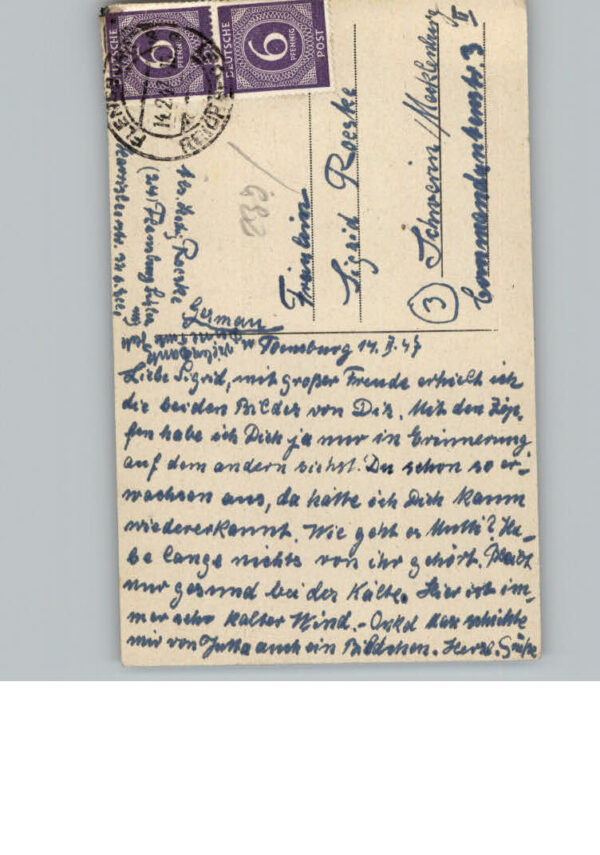 DEUTSCHE POST
6
PFENNIG
DEUTSCHE POST
6
PFENNIG
FLENSBURG
14.2.47
Fräulein
Sigrid Roeske
(3) Schwerin/Mecklenburg
Commandantenstr. 3 II
Abs. Roeske
(24) Flensburg
German
Flensburg 14. II. 47
Liebe Sigrid, mit großer Freude erhielt ich
die beiden Bilder von Dir. Mit den Zöp-
fen habe ich Dich ja nur in Erinnerung,
auf dem andern siehst Du schon so er-
wachsen aus, da hätte ich Dich kaum
wiedererkannt. Wie geht es Mutti? Ha-
be lange nichts von ihr gehört. Bleibt
nur gesund bei der Kälte. Hier ist im-
mer sehr kalter Wind. - Onkel schickte
mir von Jutta auch ein Bildchen. Herzl. Grüße